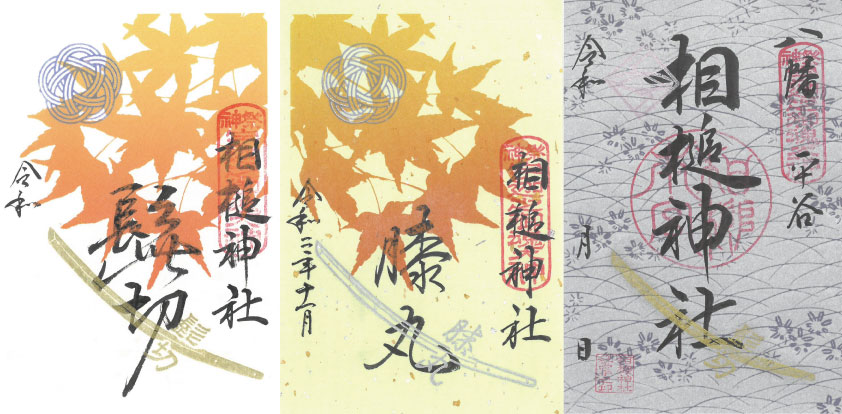 相槌神社
髭切
髭切
令和
相槌神社
膝丸
膝丸
令和三年十一月
八幡 平谷
相槌神社
令和 月 日